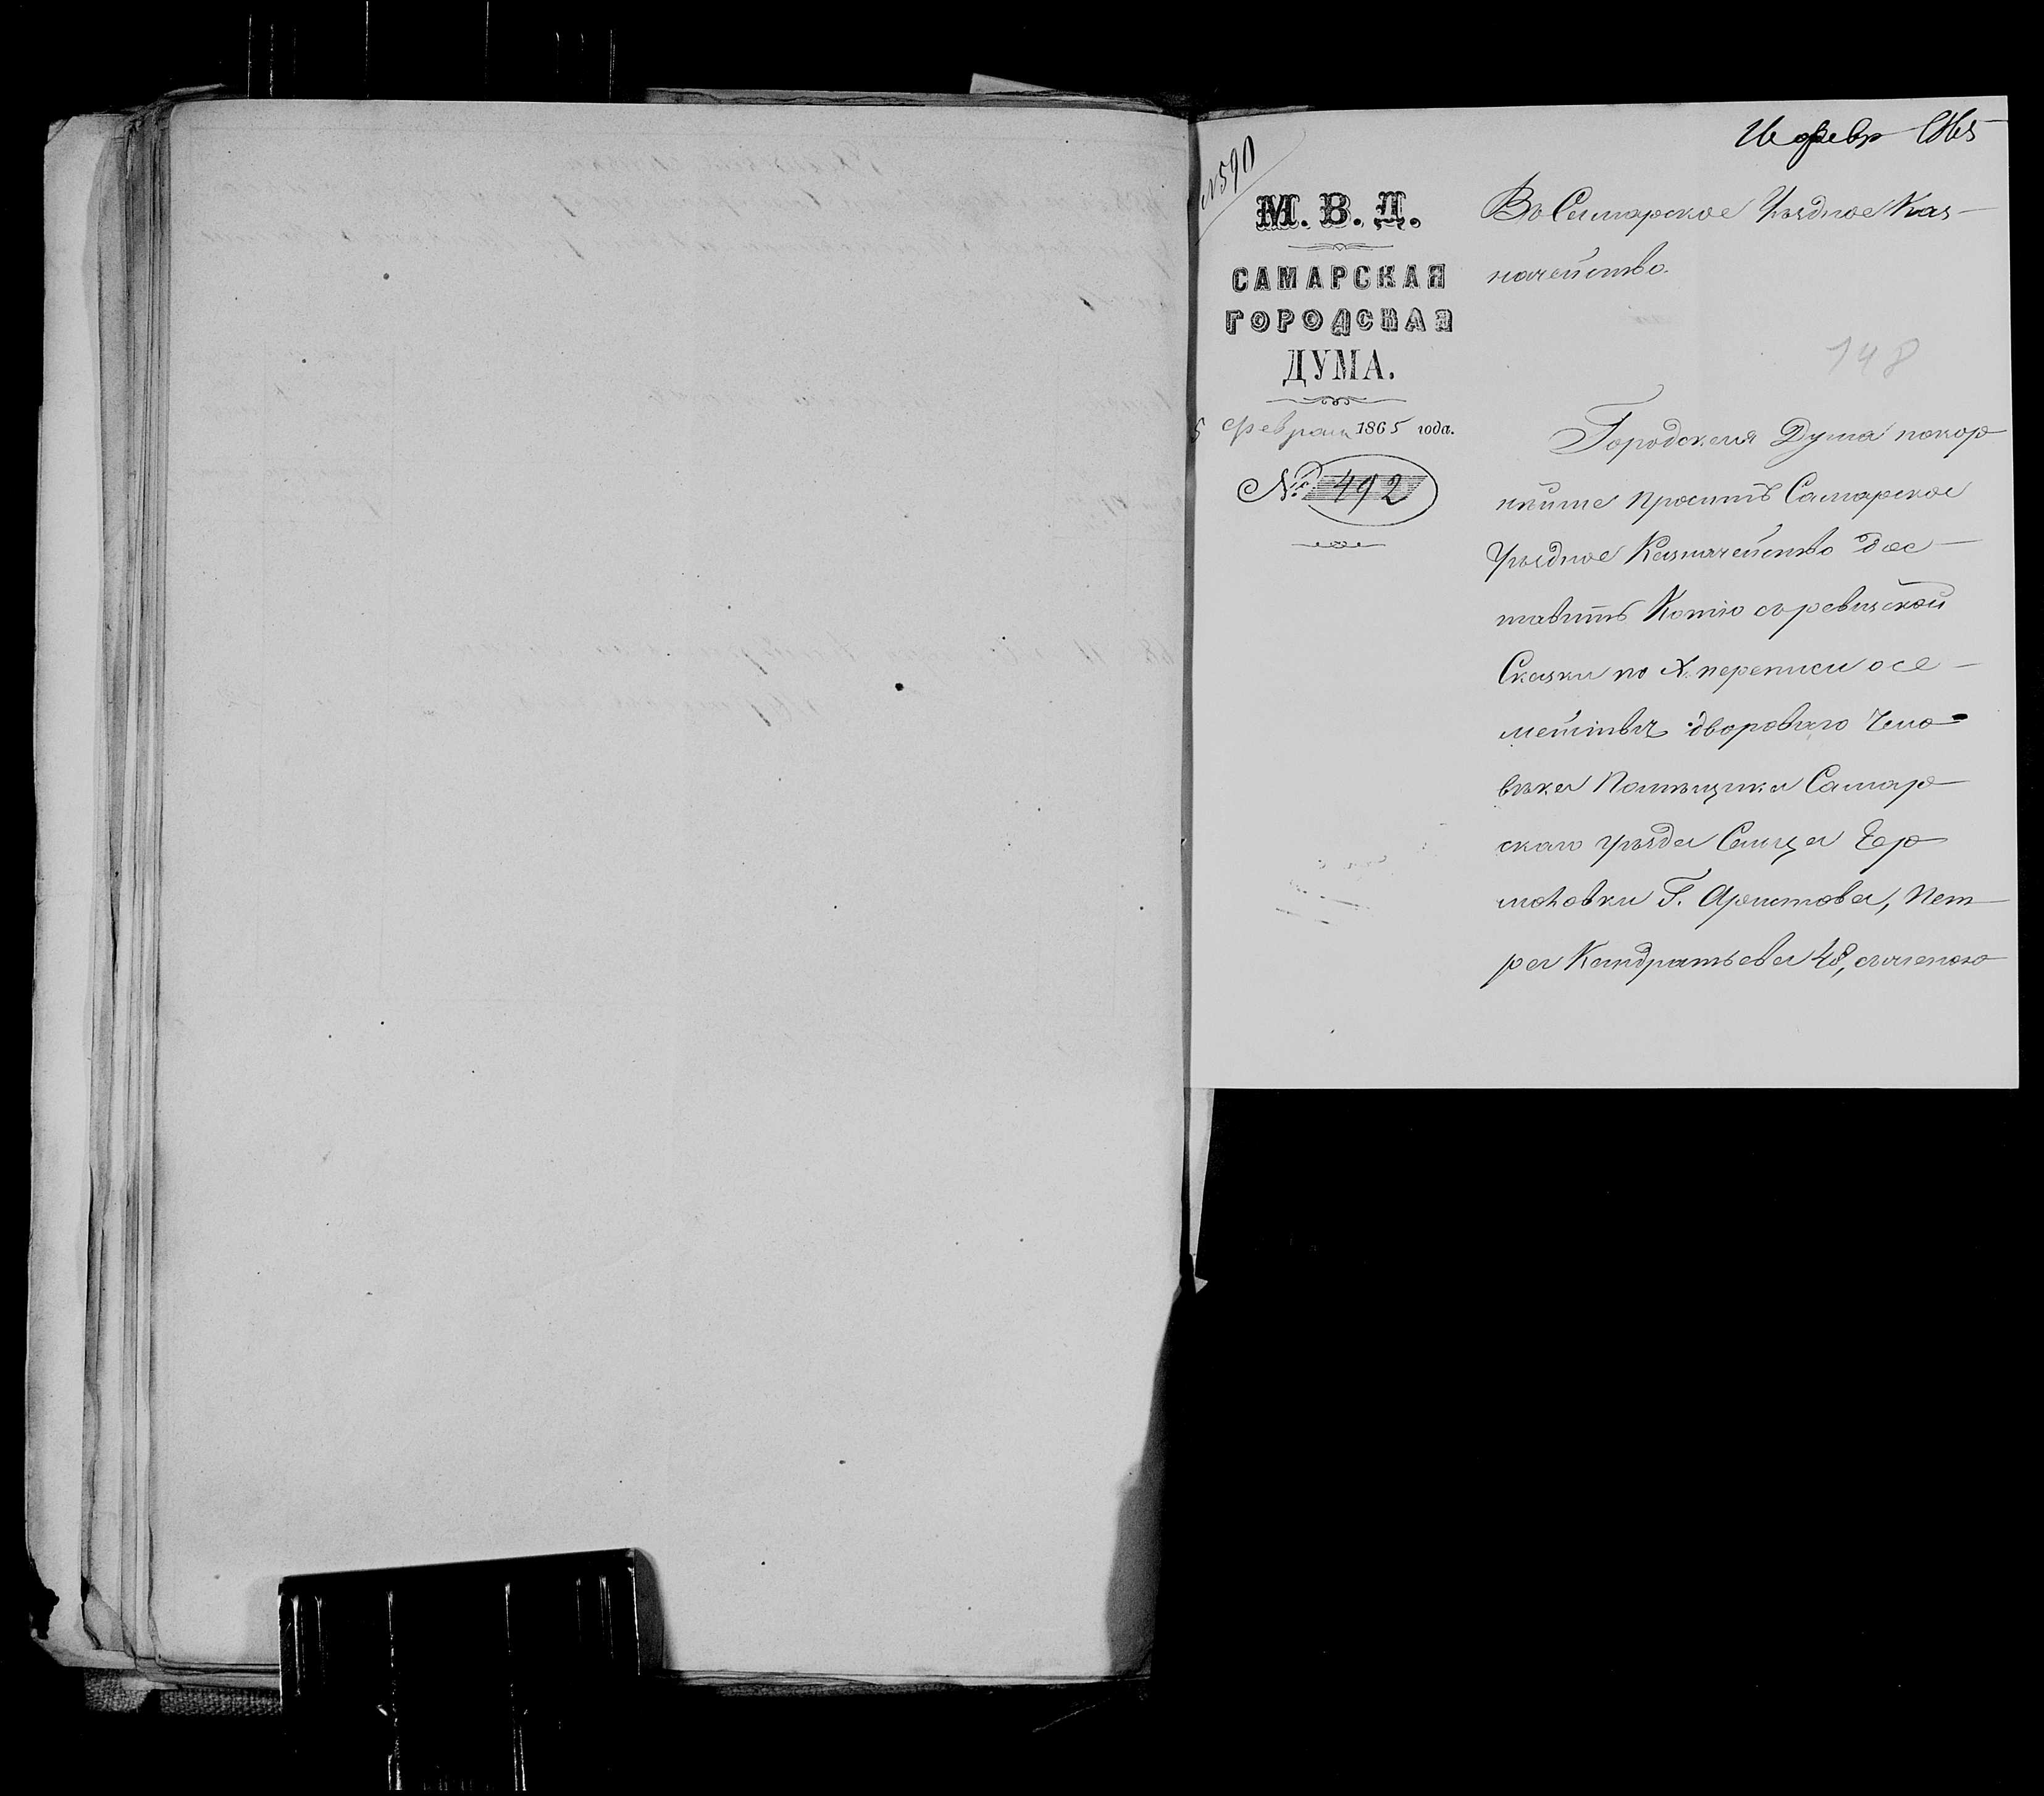 № 590
16 февр 1865
М. В. Д.
САМАРСКАЯ
ГОРОДСКАЯ
ДУМА.
5 февраля 1865 года.
№ 492
Въ Самарское Уѣздное Каз-
начейство.
148
Городская Дума покор-
нѣйше проситъ Самарское
Уѣздное Казначейство дос-
тавить Копію съ ревизской
Сказки по X. переписи о се-
мействѣ дворового Чело-
вѣка Помѣщика Самар-
скаго уѣзда Сельца
Г. Аристова, Пет-
ра Кандратьева 48,